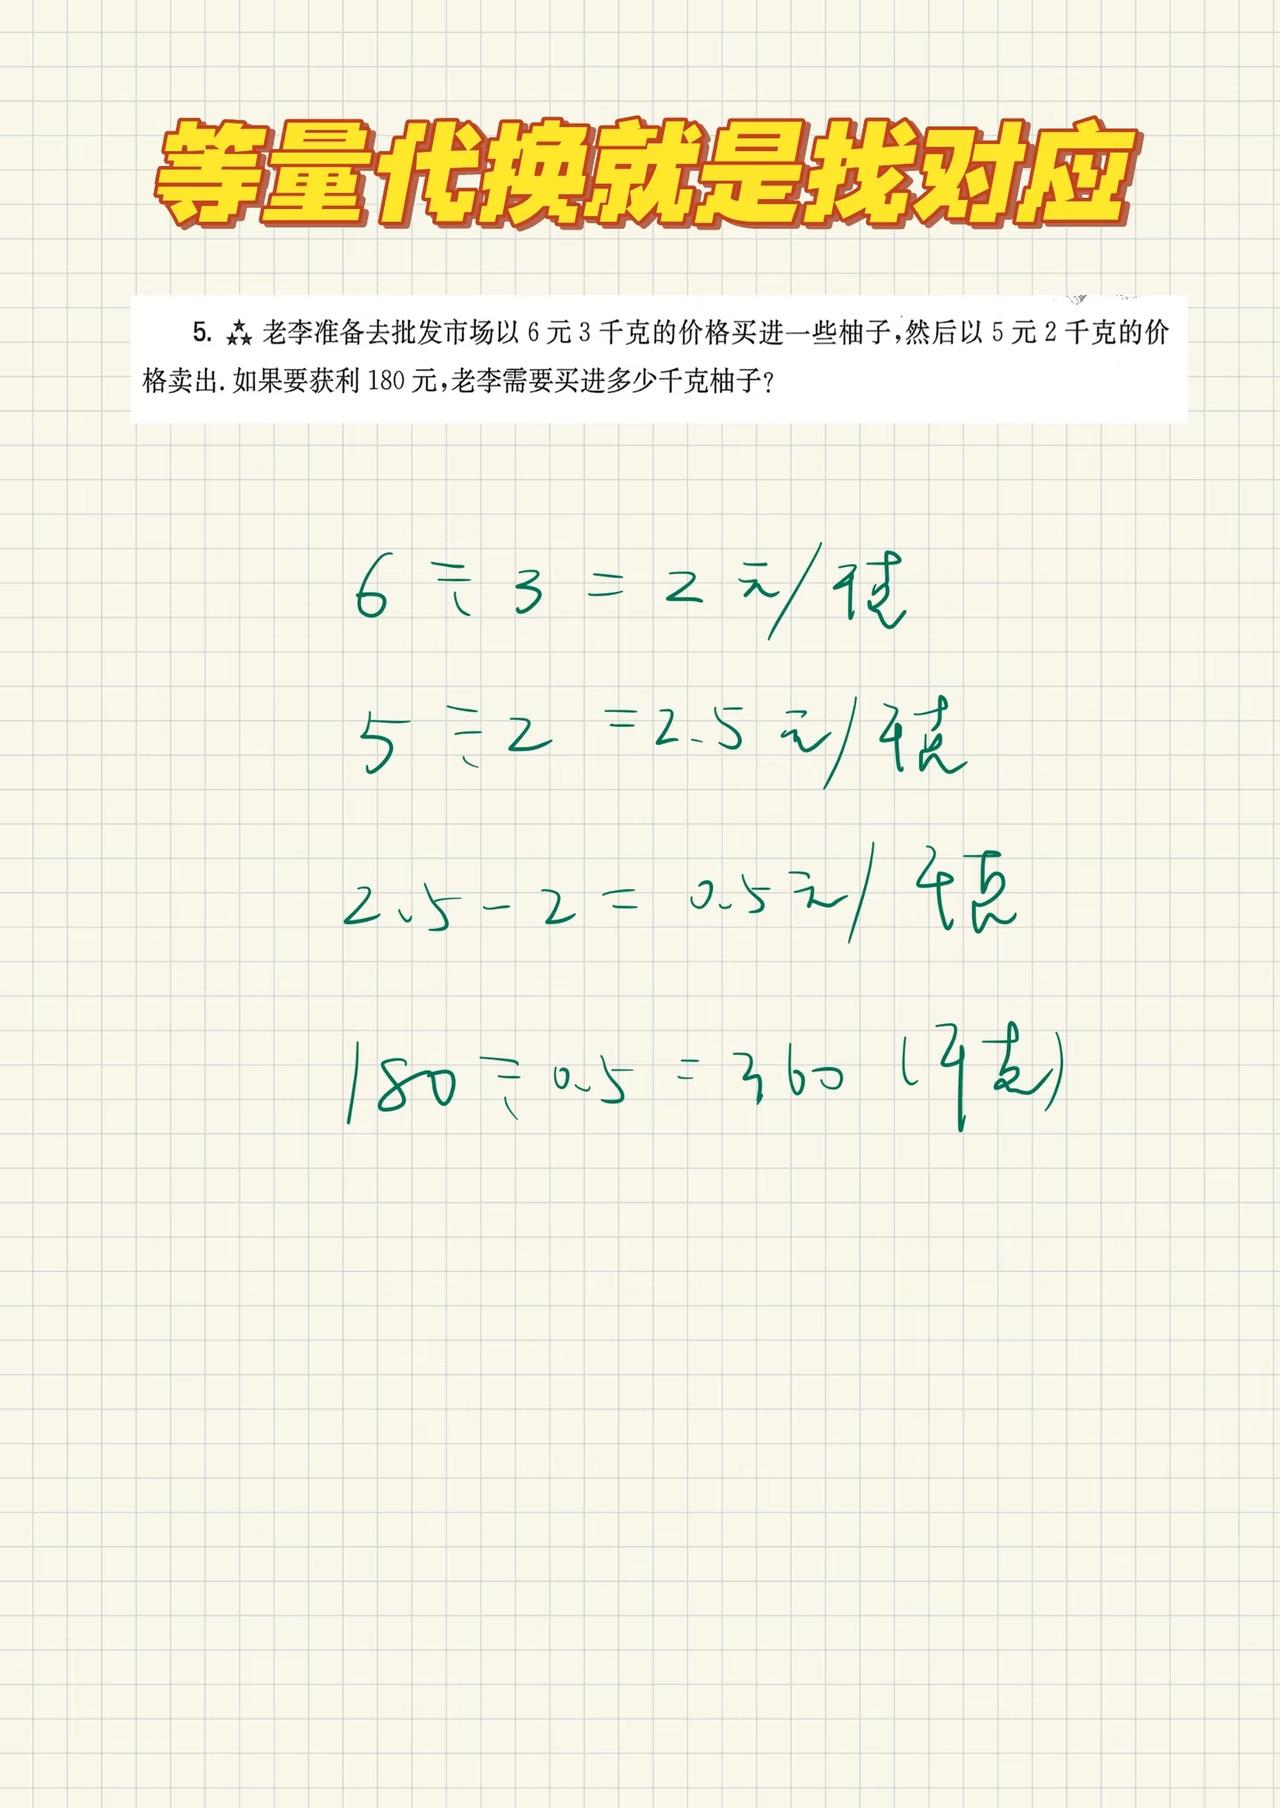 等量代换就是找对应
5. 老李准备去批发市场以6元3千克的价格买进一些柚子,然后以5元2千克的价
格卖出.如果要获利180元,老李需要买进多少千克柚子?
6÷3=2元/千克
5÷2=2.5元/千克
2.5-2=0.5元/千克
180÷0.5=360(千克)